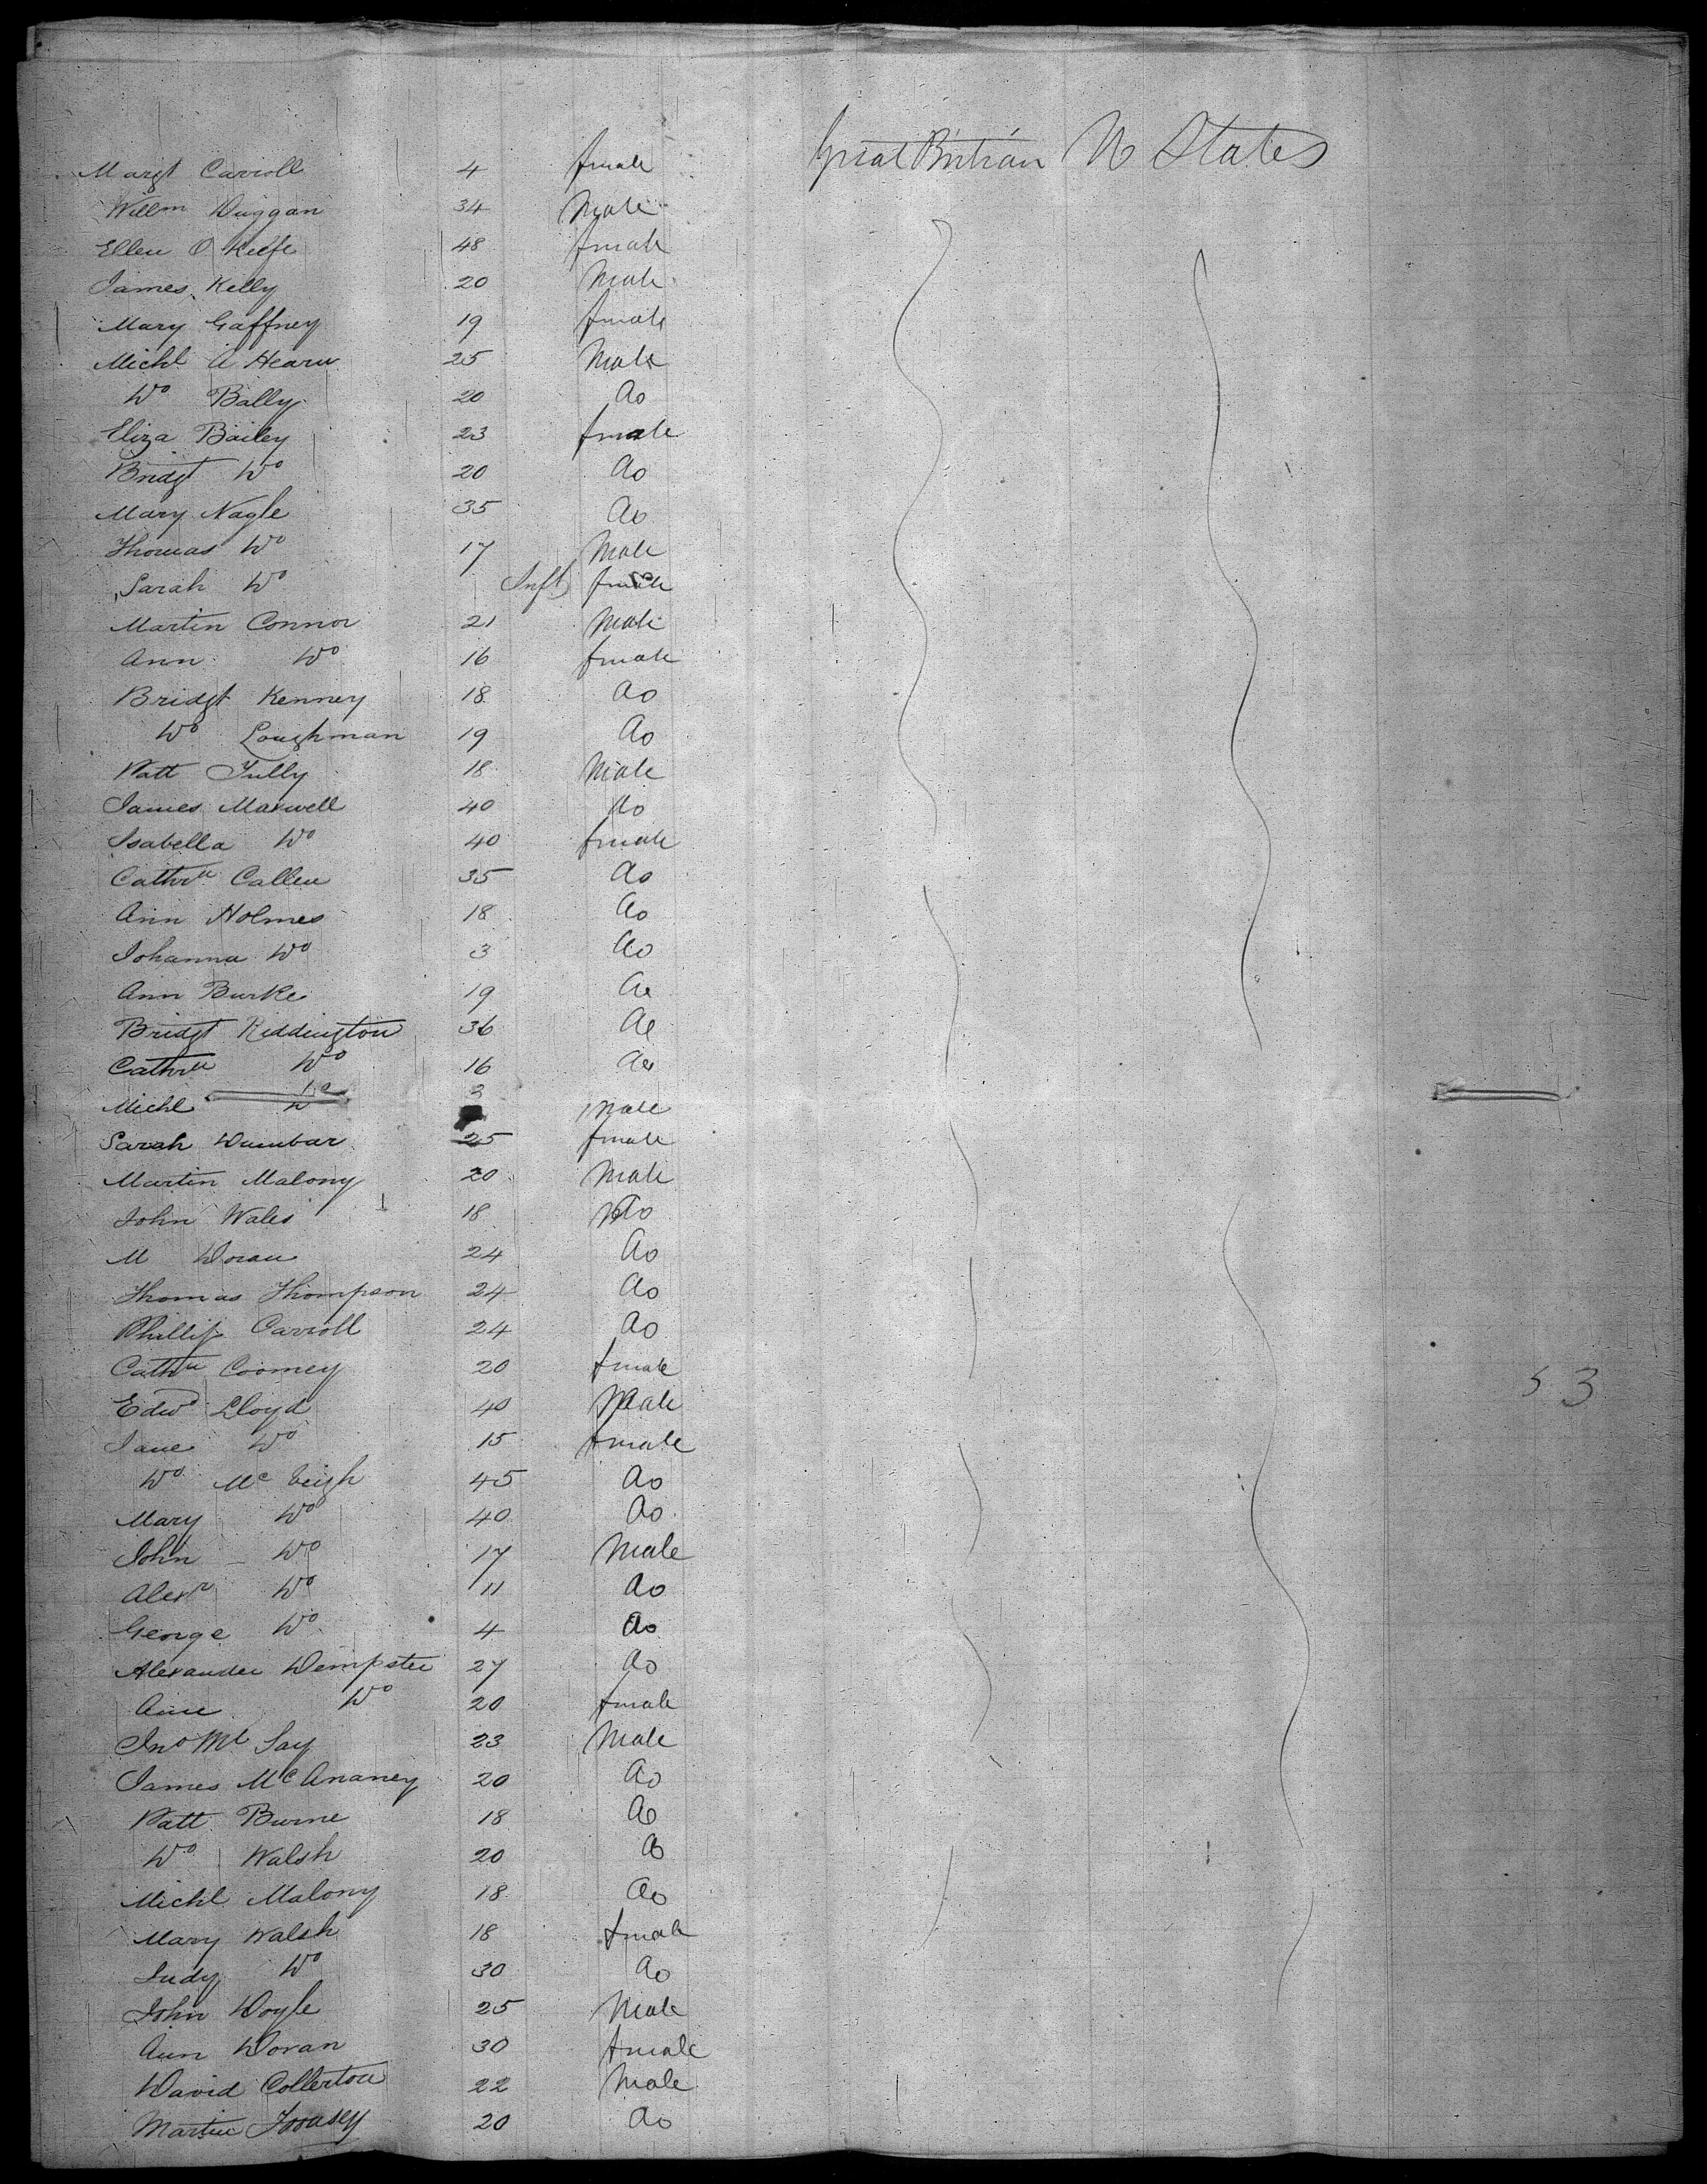 Margt Carroll 4 female Great Britian U States
Willm Duggan 34 Male
Ellen O Keefe 48 female
James Kelly 20 Male
Mary Gaffney 19 female
Michl A Hearn 25 Male
Do Bally 20 do
Eliza Bailey 23 female
Bridgt Do 20 do
Mary Nagle 35 do
Thomas Do 17 Male
Sarah Do Inft female
Martin Connor 21 Male
Ann Do 16 female
Bridgt Kenney 18 do
Do Loughman 19 do
Patt Tully 18 Male
James Maxwell 40 do
Isabella Do 40 female
Cathne Callen 35 do
Ann Holmes 18 do
Johanna Do 3 do
Ann Burke 19 do
Bridgt Reddington 36 do
Cathne Do 16 do
Michl Do 3 Male
Sarah Dumbar 25 female
Martin Malony 20 Male
John Wales 18 do
M Doran 24 do
Thomas Thompson 24 do
Phillip Carroll 24 do
Cathne Coomey 20 female
Edwd Lloyd 40 Male
Jane Do 15 female
Do Mc Veigh 45 do
Mary Do 40 do
John Do 17 Male
Alexr Do 11 do
George Do 4 do
Alexander Dempster 27 do
Ann Do 20 female
Jno Mc Say 23 Male
James McAnaney 20 do
Patt Burne 18 do
Do Walsh 20 do
Michl Malony 18 do
Mary Walsh 18 female
Judy Do 30 do
John Doyle 25 Male
Ann Doran 30 female
David Collerton 22 Male
Martin 20 do
53